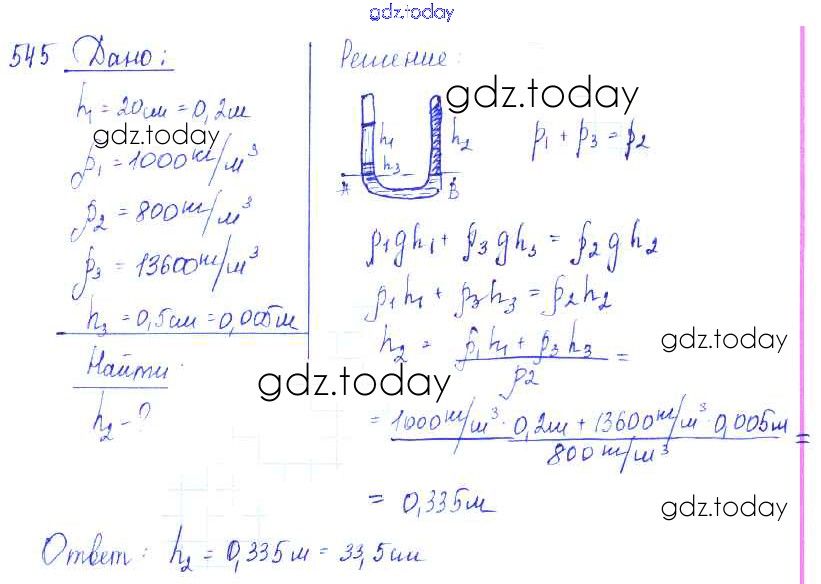 gdz.today
545 Дано:
h₁ = 20см = 0,2м
gdz.today
ρ₁ = 1000кг/м³
ρ₂ = 800кг/м³
ρ₃ = 13600кг/м³
h₃ = 0,5см = 0,005м
Найти:
h₂ - ?
Решение:
gdz.today
h₁ h₂
h₃
A B
p₁ + p₃ = p₂
ρ₁gh₁ + ρ₃gh₃ = ρ₂gh₂
ρ₁h₁ + ρ₃h₃ = ρ₂h₂
gdz.today
h₂ = (ρ₁h₁ + ρ₃h₃)/ρ₂ =
gdz.today
= (1000кг/м³ · 0,2м + 13600кг/м³ · 0,005м)/800кг/м³ =
= 0,335м
gdz.today
Ответ: h₂ = 0,335м = 33,5см